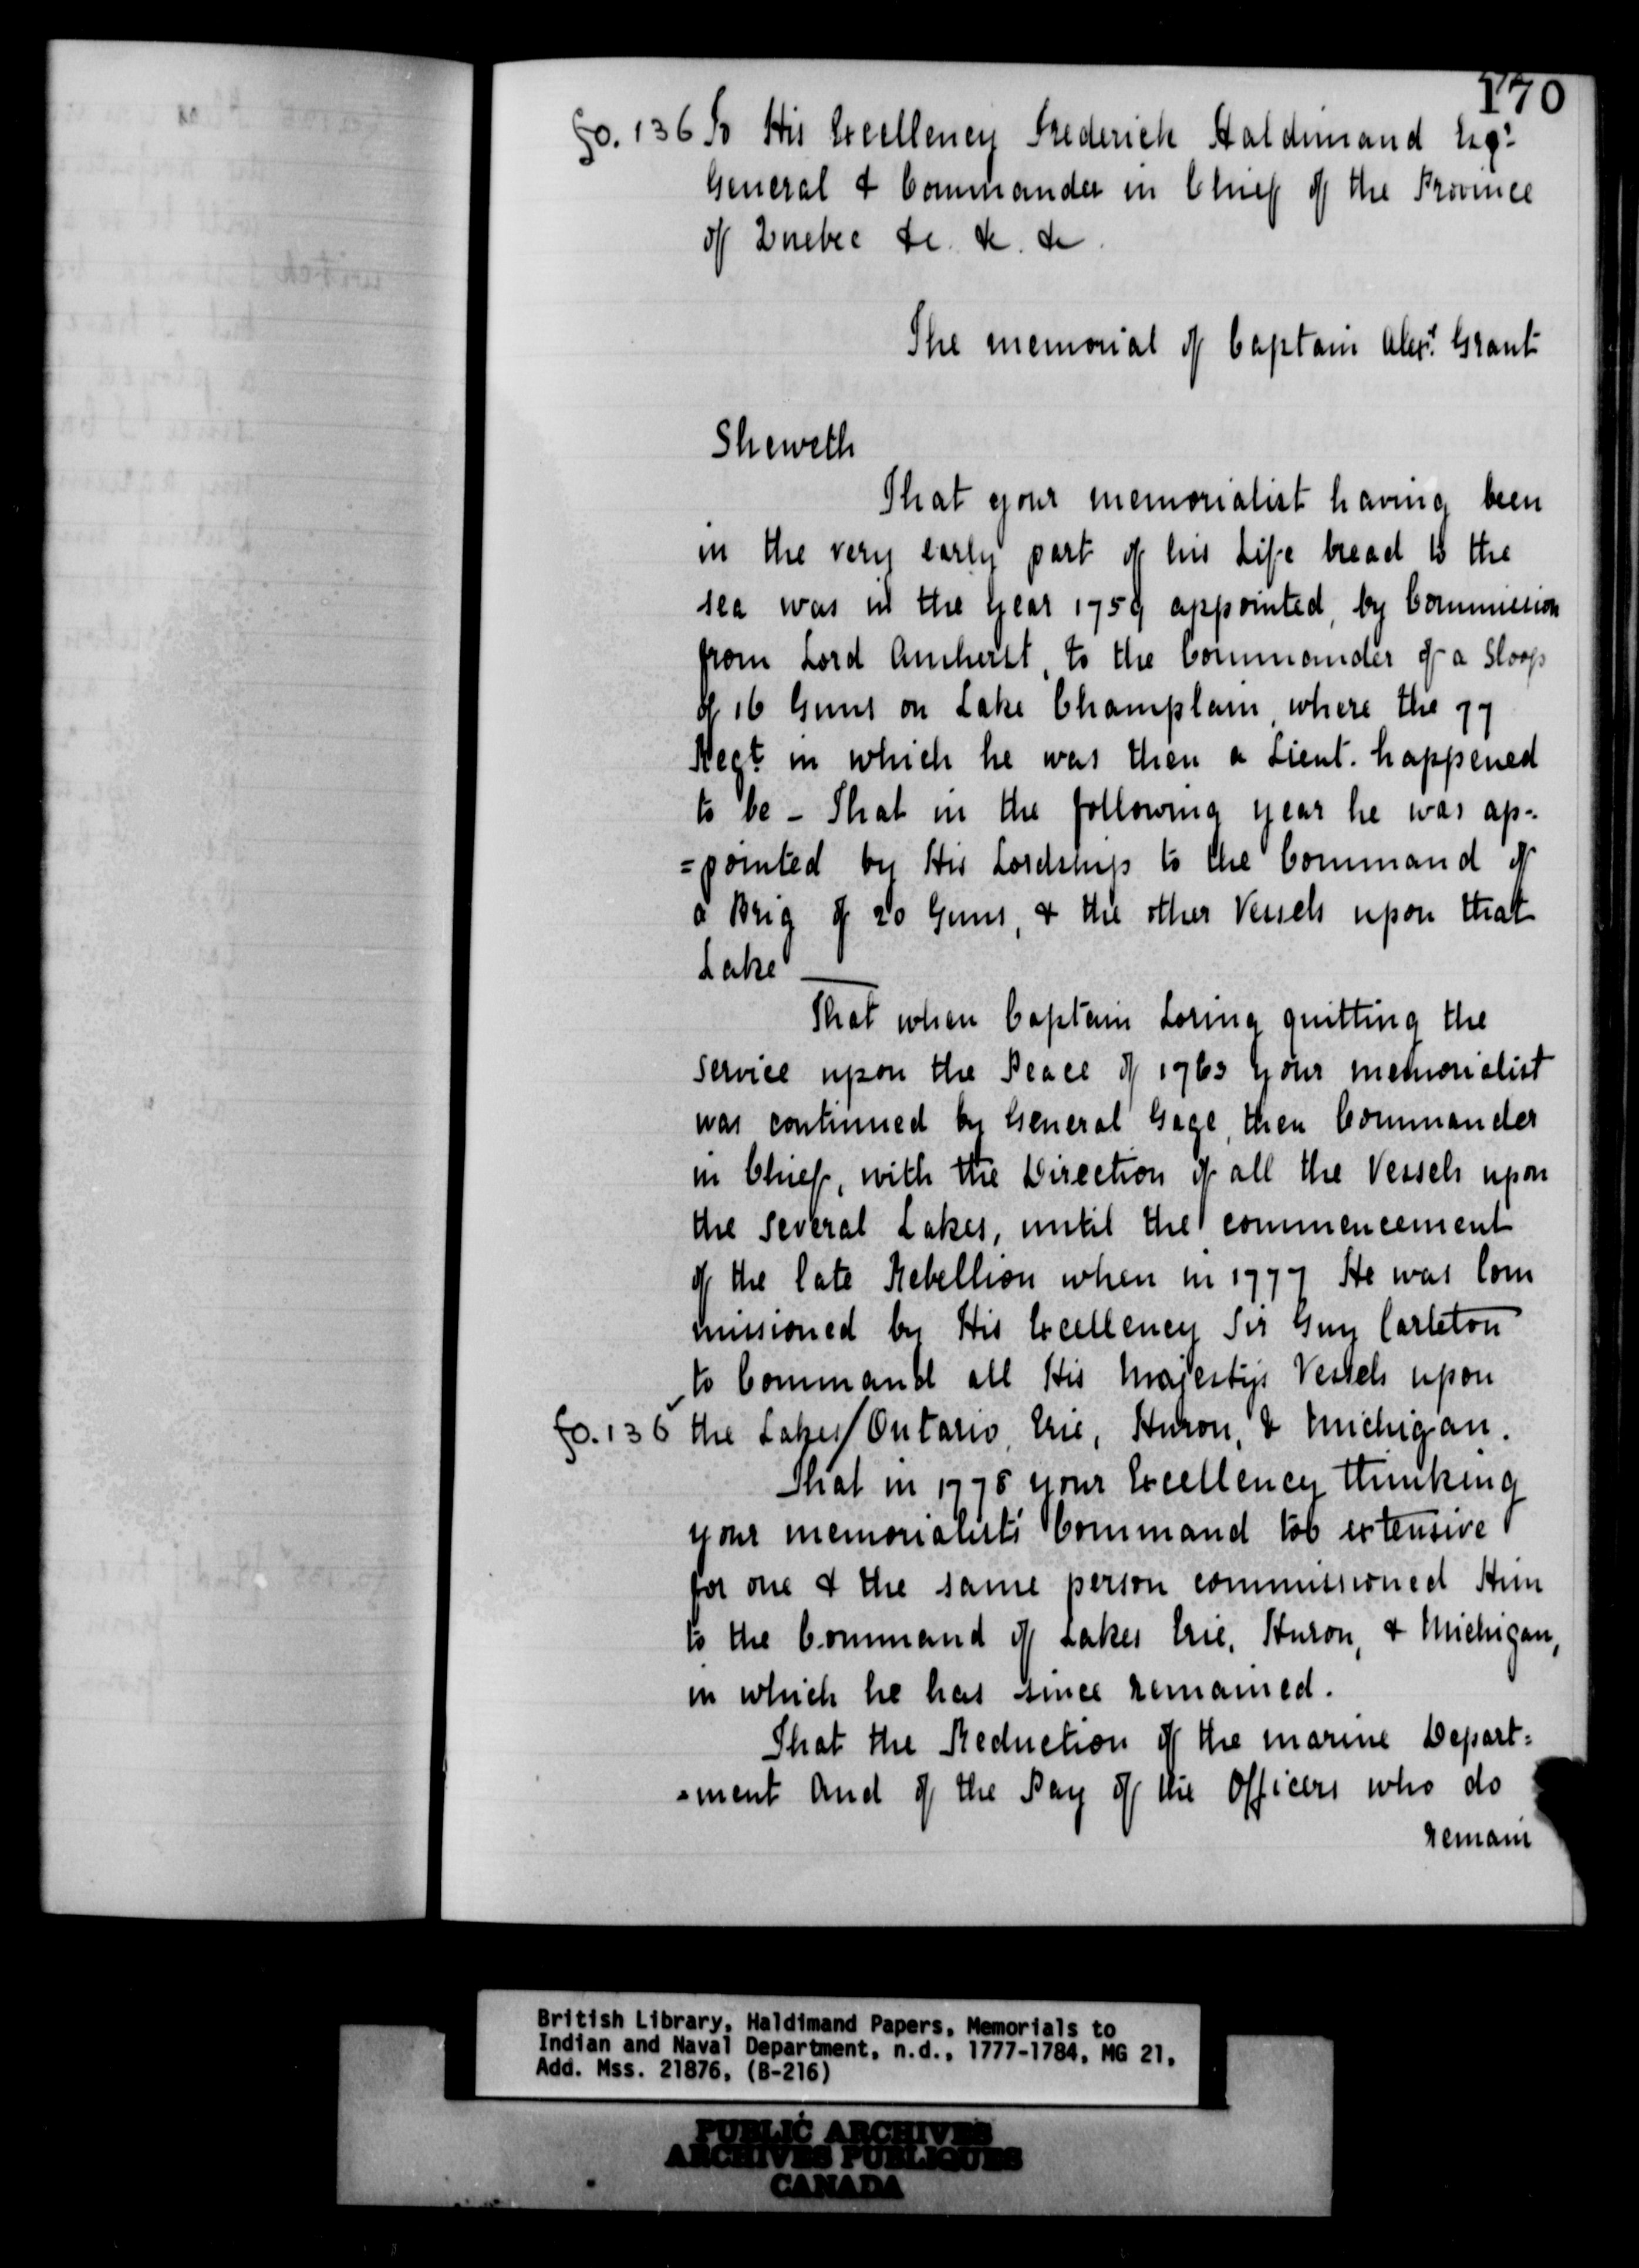 170
fo. 136 To His Excellency Frederick Haldimand Esqr.
General & Commander in Chief of the Province
of Quebec &c. &c. &c.
The memorial of Captain Alexr. Grant
Sheweth
That your memorialist having been
in the very early part of his Life bread to the
sea was in the year 1759 appointed, by Commission
from Lord Amherst, to the Commander of a Sloop
of 16 Guns on Lake Champlain, where the 77
Regt. in which he was then a Lieut. happened
to be – That in the following year he was ap-
=pointed by His Lordship to the Command of
a Brig of 20 Guns, & the other Vessels upon that
Lake —
That when Captain Loring quitting the
service upon the Peace of 1763 your memorialist
was continued by General Gage, then Commander
in Chief, with the Direction of all the Vessels upon
the several Lakes, until the commencement
of the late Rebellion when in 1777 He was Com
missioned by His Excellency Sir Guy Carleton
to Command all His Majestys Vessels upon
fo. 136 the Lakes/Ontario, Erie, Huron, & Michigan.
That in 1778 your Excellency thinking
your memorialists' Command too extensive
for one & the same person commissioned Him
to the Command of Lakes Erie, Huron, & Michigan,
in which he has since remained.
That the Reduction of the marine Depart=
=ment and of the Pay of the Officers who do
remain
British Library, Haldimand Papers, Memorials to
Indian and Naval Department, n.d., 1777-1784, MG 21,
Add. Mss. 21876, (B-216)
PUBLIC ARCHIVES
ARCHIVES PUBLIQUES
CANADA